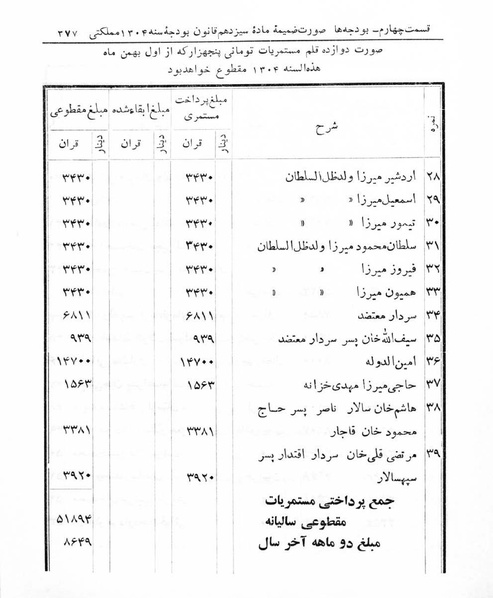 قسمت چهارم ـ بودجه‌ها صورت ضمیمهٔ مادهٔ سیزدهم قانون بودجهٔ سنه ۱۳۰۴ مملکتی ۳۷۷
صورت دوازده قلم مستمریات تومانی پنجهزار که از اول بهمن ماه
هذه‌السنه ۱۳۰۴ مقطوع خواهد بود
نمره شرح مبلغ پرداخت مستمری مبلغ ابقاء شده مبلغ مقطوعی
دینار قران دینار قران دینار قران
۲۸ اردشیر میرزا ولد ظل السلطان ۳۴۳۰ ۳۴۳۰
۲۹ اسمعیل میرزا » » ۳۴۳۰ ۳۴۳۰
۳۰ تیمور میرزا » » ۳۴۳۰ ۳۴۳۰
۳۱ سلطان محمود میرزا ولد ظل السلطان ۳۴۳۰ ۳۴۳۰
۳۲ فیروز میرزا » » ۳۴۳۰ ۳۴۳۰
۳۳ همیون میرزا » » ۳۴۳۰ ۳۴۳۰
۳۴ سردار معتضد ۶۸۱۱ ۶۸۱۱
۳۵ سیف‌الله خان پسر سردار معتضد ۹۳۹ ۹۳۹
۳۶ امین الدوله ۱۴۷۰۰ ۱۴۷۰۰
۳۷ حاجی میرزا مهدی خزانه ۱۵۶۳ ۱۵۶۳
۳۸ هاشم خان سالار ناصر پسر حاج
محمود خان قاجار ۳۳۸۱ ۳۳۸۱
۳۹ مرتضی قلی خان سردار اقتدار پسر
سپهسالار ۳۹۲۰ ۳۹۲۰
جمع پرداختی مستمریات
مقطوعی سالیانه ۵۱۸۹۴
مبلغ دو ماهه آخر سال ۸۶۴۹